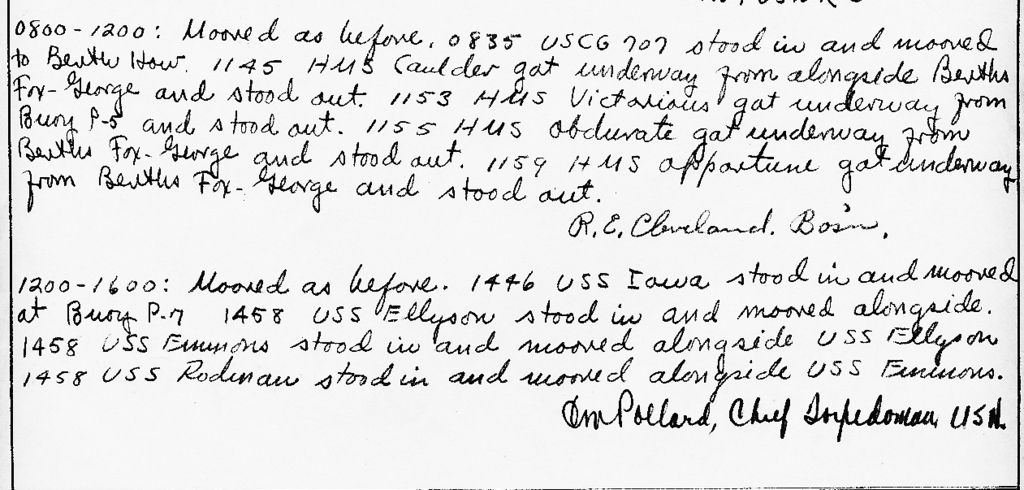 0800-1200: Moored as before. 0835 USCG 707 stood in and moored
to Berth How. 1145 HMS Caulder got underway from alongside Berths
Fox-George and stood out. 1153 HMS Victorious got underway from
Buoy P-5 and stood out. 1155 HMS Obdurate got underway from
Berths Fox-George and stood out. 1159 HMS Opportune got underway
from Berths Fox-George and stood out.
R.E. Cleveland. Bos'n.
1200-1600: Moored as before. 1446 USS Iowa stood in and moored
at Buoy P-7 1458 USS Ellyson stood in and moored alongside.
1458 USS Emmons stood in and moored alongside USS Ellyson
1458 USS Rodman stood in and moored alongside USS Emmons.
Pollard, Chief Torpedoman, USN.